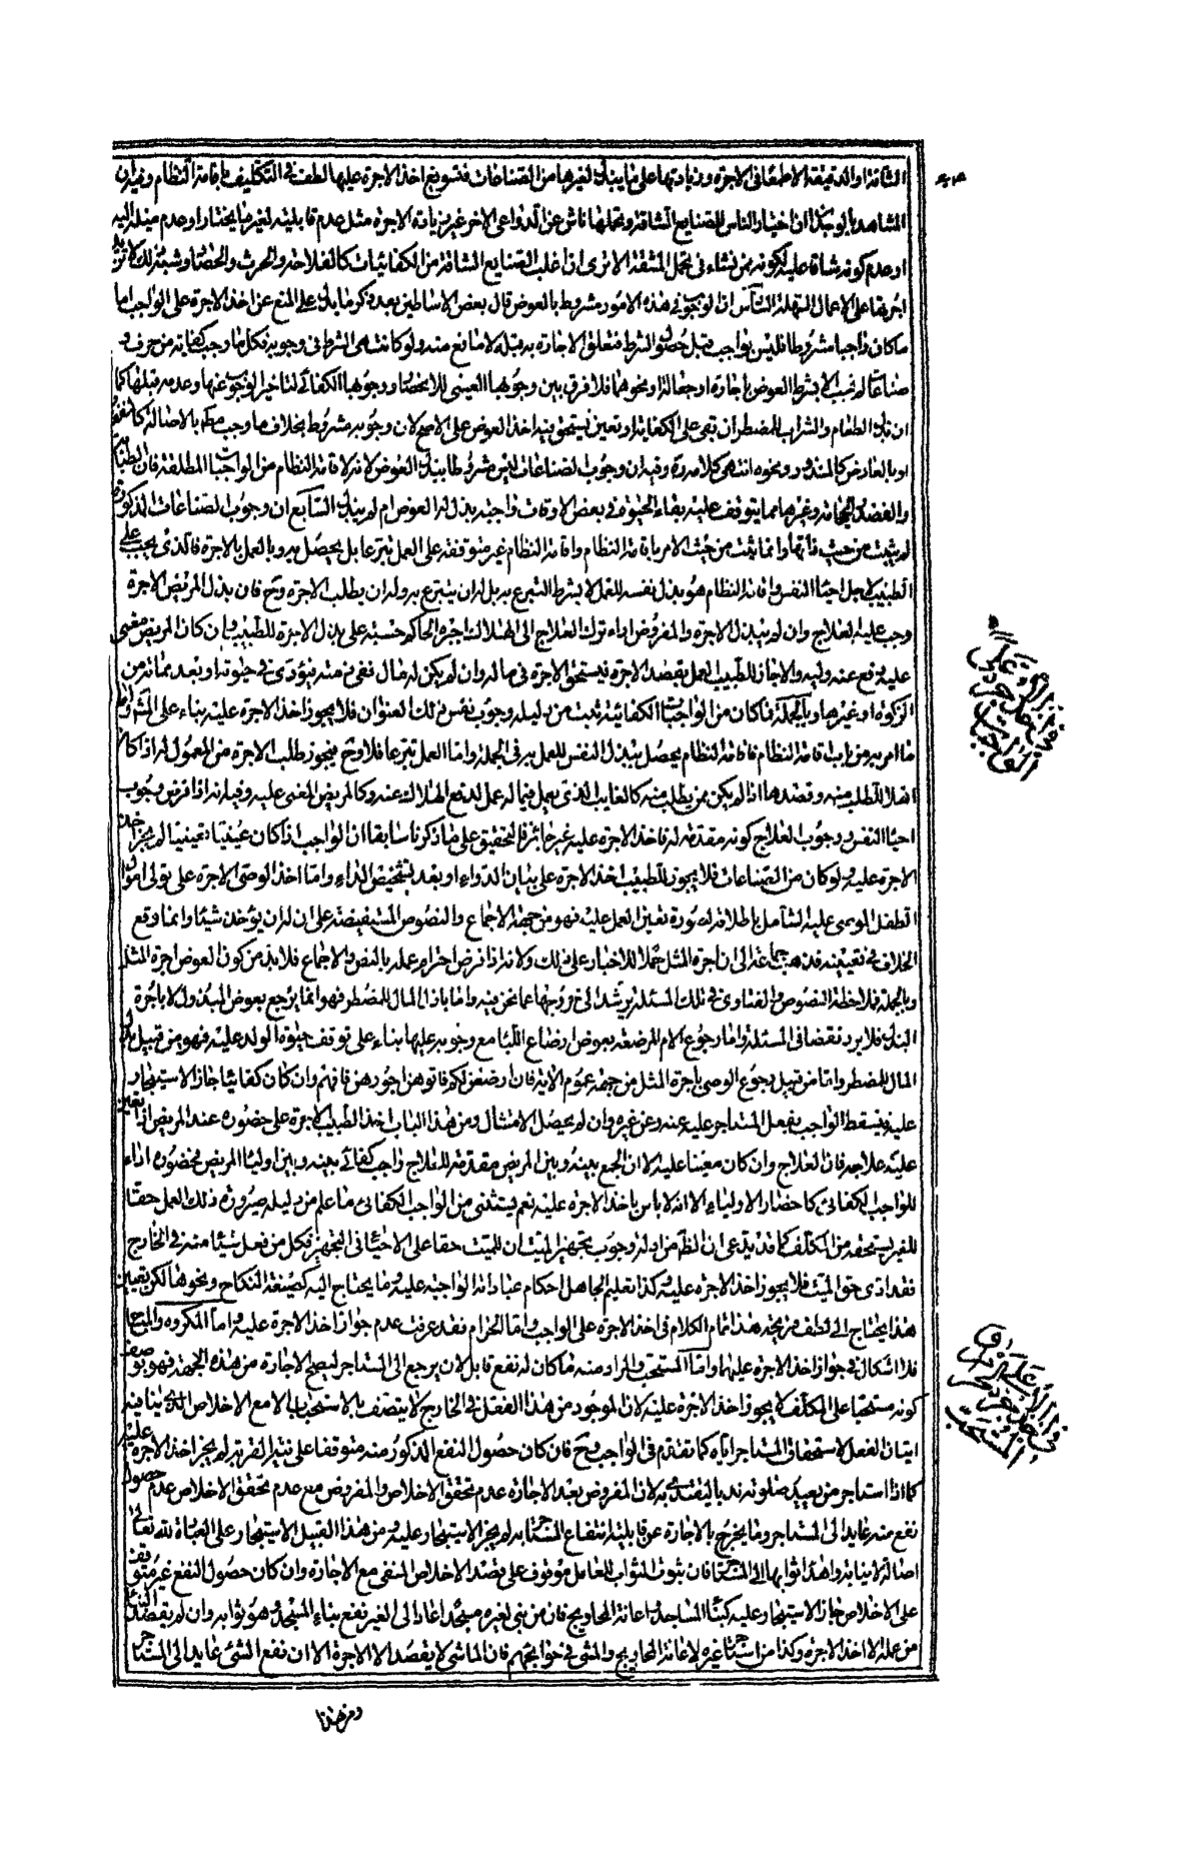 الشاقة او الدقيقة الا طمعا في الاجرة وزيادتها على ما يبذل لغيرها من الصناعات فتسويغ اخذ الاجرة عليها لطف في التكليف باقامة النظام وفيه ان
المشاهد بالوجدان ان اختيار الناس للصنايع الشاقة وتحملها ناش عن الدواعي الاخر غير زيادة الاجرة مثل عدم قابليته لغير ما يختار او عدم ميله اليه
او عدم كونه شاقا عليه لكونه ممن نشاء في تحمل المشقة الا ترى ان اغلب الصنايع الشاقة من الكفائيات كالفلاحة والحرث والحصاد وشبه ذلك لا تزيد
اجرتها على الاعمال السهلة الثامن ان الوجوب في هذه الامور مشروط بالعوض قال بعض الاساطين بعد ذكر ما يدل على المنع عن اخذ الاجرة على الواجب اما
ما كان واجبا مشروطا فليس بواجب قبل حصول الشرط فتعلق الاجارة به قبله لا مانع منه ولو كانت هي الشرط في وجوبه فكل ما وجب كفاية من حرف و
صناعات لم تجب الا بشرط العوض باجارة او جعالة او نحوهما فلا فرق بين وجوبها العيني للانحصار ووجوبها الكفائي لتاخر الوجوب عنها وعدمه قبلها كما
ان بذل الطعام والشراب للمضطر ان بقي على الكفاية او تعين يستحق فيه اخذ العوض على الاصح لان وجوبه مشروط بخلاف ما وجب مطلقا بالاصالة كالنفقة
او بالعارض كالمنذور ونحوه انتهى كلامه ره وفيه ان وجوب الصناعات ليس مشروطا ببذل العوض لانه لاقامة النظام من الواجبات المطلقة فان الطبابة
والفصد والحجامة وغيرها مما يتوقف عليه بقاء الحيوة في بعض الاوقات واجبة بذل له العوض ام لم يبذل السابع ان وجوب الصناعات المذكورة
لم يثبت من حيث ذاتها وانما يثبت من حيث الامر باقامة النظام واقامة النظام غير متوقفة على العمل تبرعا بل يحصل به وبالعمل بالاجرة فالذي يجب على
الطبيب لاجل احياء النفس واقامة النظام هو بذل نفسه للعمل لا بشرط التبرع به بل له ان يتبرع به وله ان يطلب الاجرة وح فان بذل المريض الاجرة
وجب عليه العلاج وان لم يبذل الاجرة والمفروض اداء ترك العلاج الى الهلاك اجبره الحاكم حسبة على بذل الاجرة للطبيب وان كان المريض مغمى
عليه دفع عنه وليه والا جاز للطبيب العمل بقصد الاجرة فيستحق الاجرة في ماله وان لم يكن له مال ففي ذمته فيؤدى في حيوته او بعد مماته من
الزكوة او غيرها وبالجملة فما كان من الواجبات الكفائية ثبت من دليله وجوب نفس ذلك العنوان فلا يجوز اخذ الاجرة عليه بناء على المشهور واما
ما امر به من باب اقامة النظام فاقامة النظام يحصل ببذل النفس للعمل به في الجملة واما العمل تبرعا فلا وح فيجوز طلب الاجرة من المعمول له اذا كان
اهلا للطلب منه وقصدها اذا لم يكن ممن يطلب منه كالغايب الذي يعمل في ماله عمل لدفع الهلاك عنه وكالمريض المغمى عليه وفيه انه اذا فرض وجوب
احياء النفس ووجوب العلاج كونه مقدمة له فاخذ الاجرة عليه غير جائز فالتحقيق على ما ذكرنا سابقا ان الواجب اذا كان عينيا تعيينيا لم يجز اخذ
الاجرة عليه ولو كان من الصناعات فلا يجوز للطبيب اخذ الاجرة على بيان الدواء او بعد تشخيص الداء واما اخذ الوصي الاجرة على تولي اموال
الطفل الموصى عليه الشامل باطلاقه لصورة تعين العمل عليه فهو من جهة الاجماع والنصوص المستفيضة على ان له ان يؤخذ شيئا وانما وقع
الخلاف في تعيينه فذهب جماعة الى ان له اجرة المثل حملا للاخبار على ذلك ولانه اذا فرض احترام عمله بالنص والاجماع فلا بد من كون العوض اجرة المثل
وبالجملة فملاحظة النصوص والفتاوى في تلك المسئلة يرشد الى خروجها عما نحن فيه واما باذل المال للمضطر فهو انما يرجع بعوض المبذول لا باجرة
البذل فلا يرد نقضا في المسئلة واما رجوع الام المرضعة بعوض ارضاع اللباء مع وجوبه عليها بناء على توقف حيوة الولد عليه فهو من قبيل بذل
المال للمضطر واما من قبيل رجوع الوصي باجرة المثل من جهة عموم الاية فان ارضعن لكم فاتوهن اجورهن فافهم وان كان كفائيا جاز الاستيجار
عليه فيسقط الواجب بفعل المستاجر عليه عنه وعن غيره وان لم يحصل الامتثال ومن هذا الباب اخذ الطبيب الاجرة على حضوره عند المريض اذا تعين
عليه علاجه فان العلاج وان كان معينا عليه الا ان الجمع بينه وبين المريض مقدمة للعلاج واجب كفائي بينه وبين اولياء المريض فحضوره اداء
للواجب الكفائي كاحضار الاولياء الا انه لا باس باخذ الاجرة عليه نعم يستثنى من الواجب الكفائي ما علم من دليله صيرورة ذلك العمل حقا
للغير يستحقه من المكلف كما قد يدعى ان الظ من ادلة وجوب تجهيز الميت ان للميت حقا على الاحياء في التجهيز فكل من فعل شيئا منه في الخارج
فقد ادى حق الميت فلا يجوز اخذ الاجرة عليه وكذا تعليم الجاهل احكام عباداته الواجبة عليه وما يحتاج اليه كصيغة النكاح ونحوها لكن تعيين
هذا يحتاج الى لطف قريحة هذا تمام الكلام في اخذ الاجرة على الواجب واما الحرام فقد عرفت عدم جواز اخذ الاجرة عليه واما المكروه والمباح
فلا اشكال في جواز اخذ الاجرة عليهما واما المستحب والمراد منه ما كان له نفع قابل لان يرجع الى المستاجر ليصح الاجارة من هذه الجهة فهو بوصف
كونه مستحبا على المكلف لا يجوز اخذ الاجرة عليه لان الموجود من هذا الفعل في الخارج لا يتصف بالاستحباب الا مع الاخلاص الذي ينافيه
اتيان الفعل لاستحقاق المستاجر اياه كما تقدم في الواجب وح فان كان حصول النفع المذكور منه متوقفا على نية القربة لم يجز اخذ الاجرة عليه
كما اذا استاجر من يعيد صلوته ندبا ليقتدى به لان المفروض بعد الاجارة عدم تحقق الاخلاص والمفروض مع عدم تحقق الاخلاص عدم حصول
نفع منه عايد الى المستاجر وما يخرج بالاجارة عن قابلية انتفاع المستاجر به لم يجز الاستيجار عليه ومن هذا القبيل الاستيجار على العبادة لله تعالى
اصالة لا نيابة واهداء ثوابها الى المستاجر فان ثبوت الثواب للعامل موقوف على قصد الاخلاص المنفي مع الاجارة وان كان حصول النفع غير متوقف
على الاخلاص جاز الاستيجار عليه كبناء المساجد واعانة المحاويج فان من بنى لغيره مسجدا عاد الى الغير نفع بناء المسجد وهو ثوابه وان لم يقصد البناء
من عمله الا اخذ الاجرة وكذا من استاجر غيره لاعانة المحاويج والمشي في حوائجهم فان الماشي لا يقصد الا الاجرة الا ان نفع المشي عايد الى المستاجر
ومن هذا